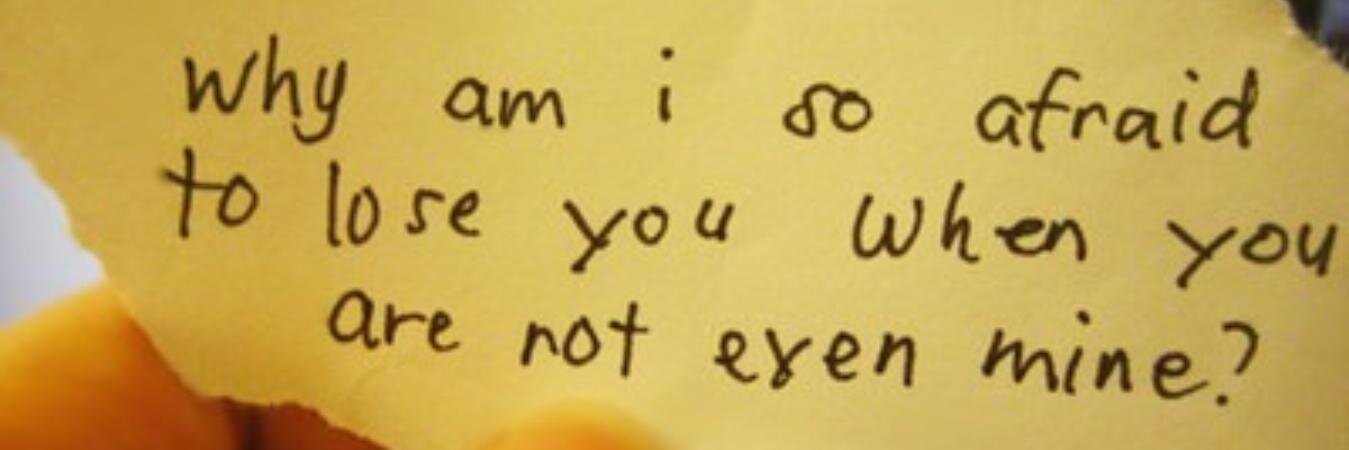 Why am i so afraid
to lose you when you
are not even mine?